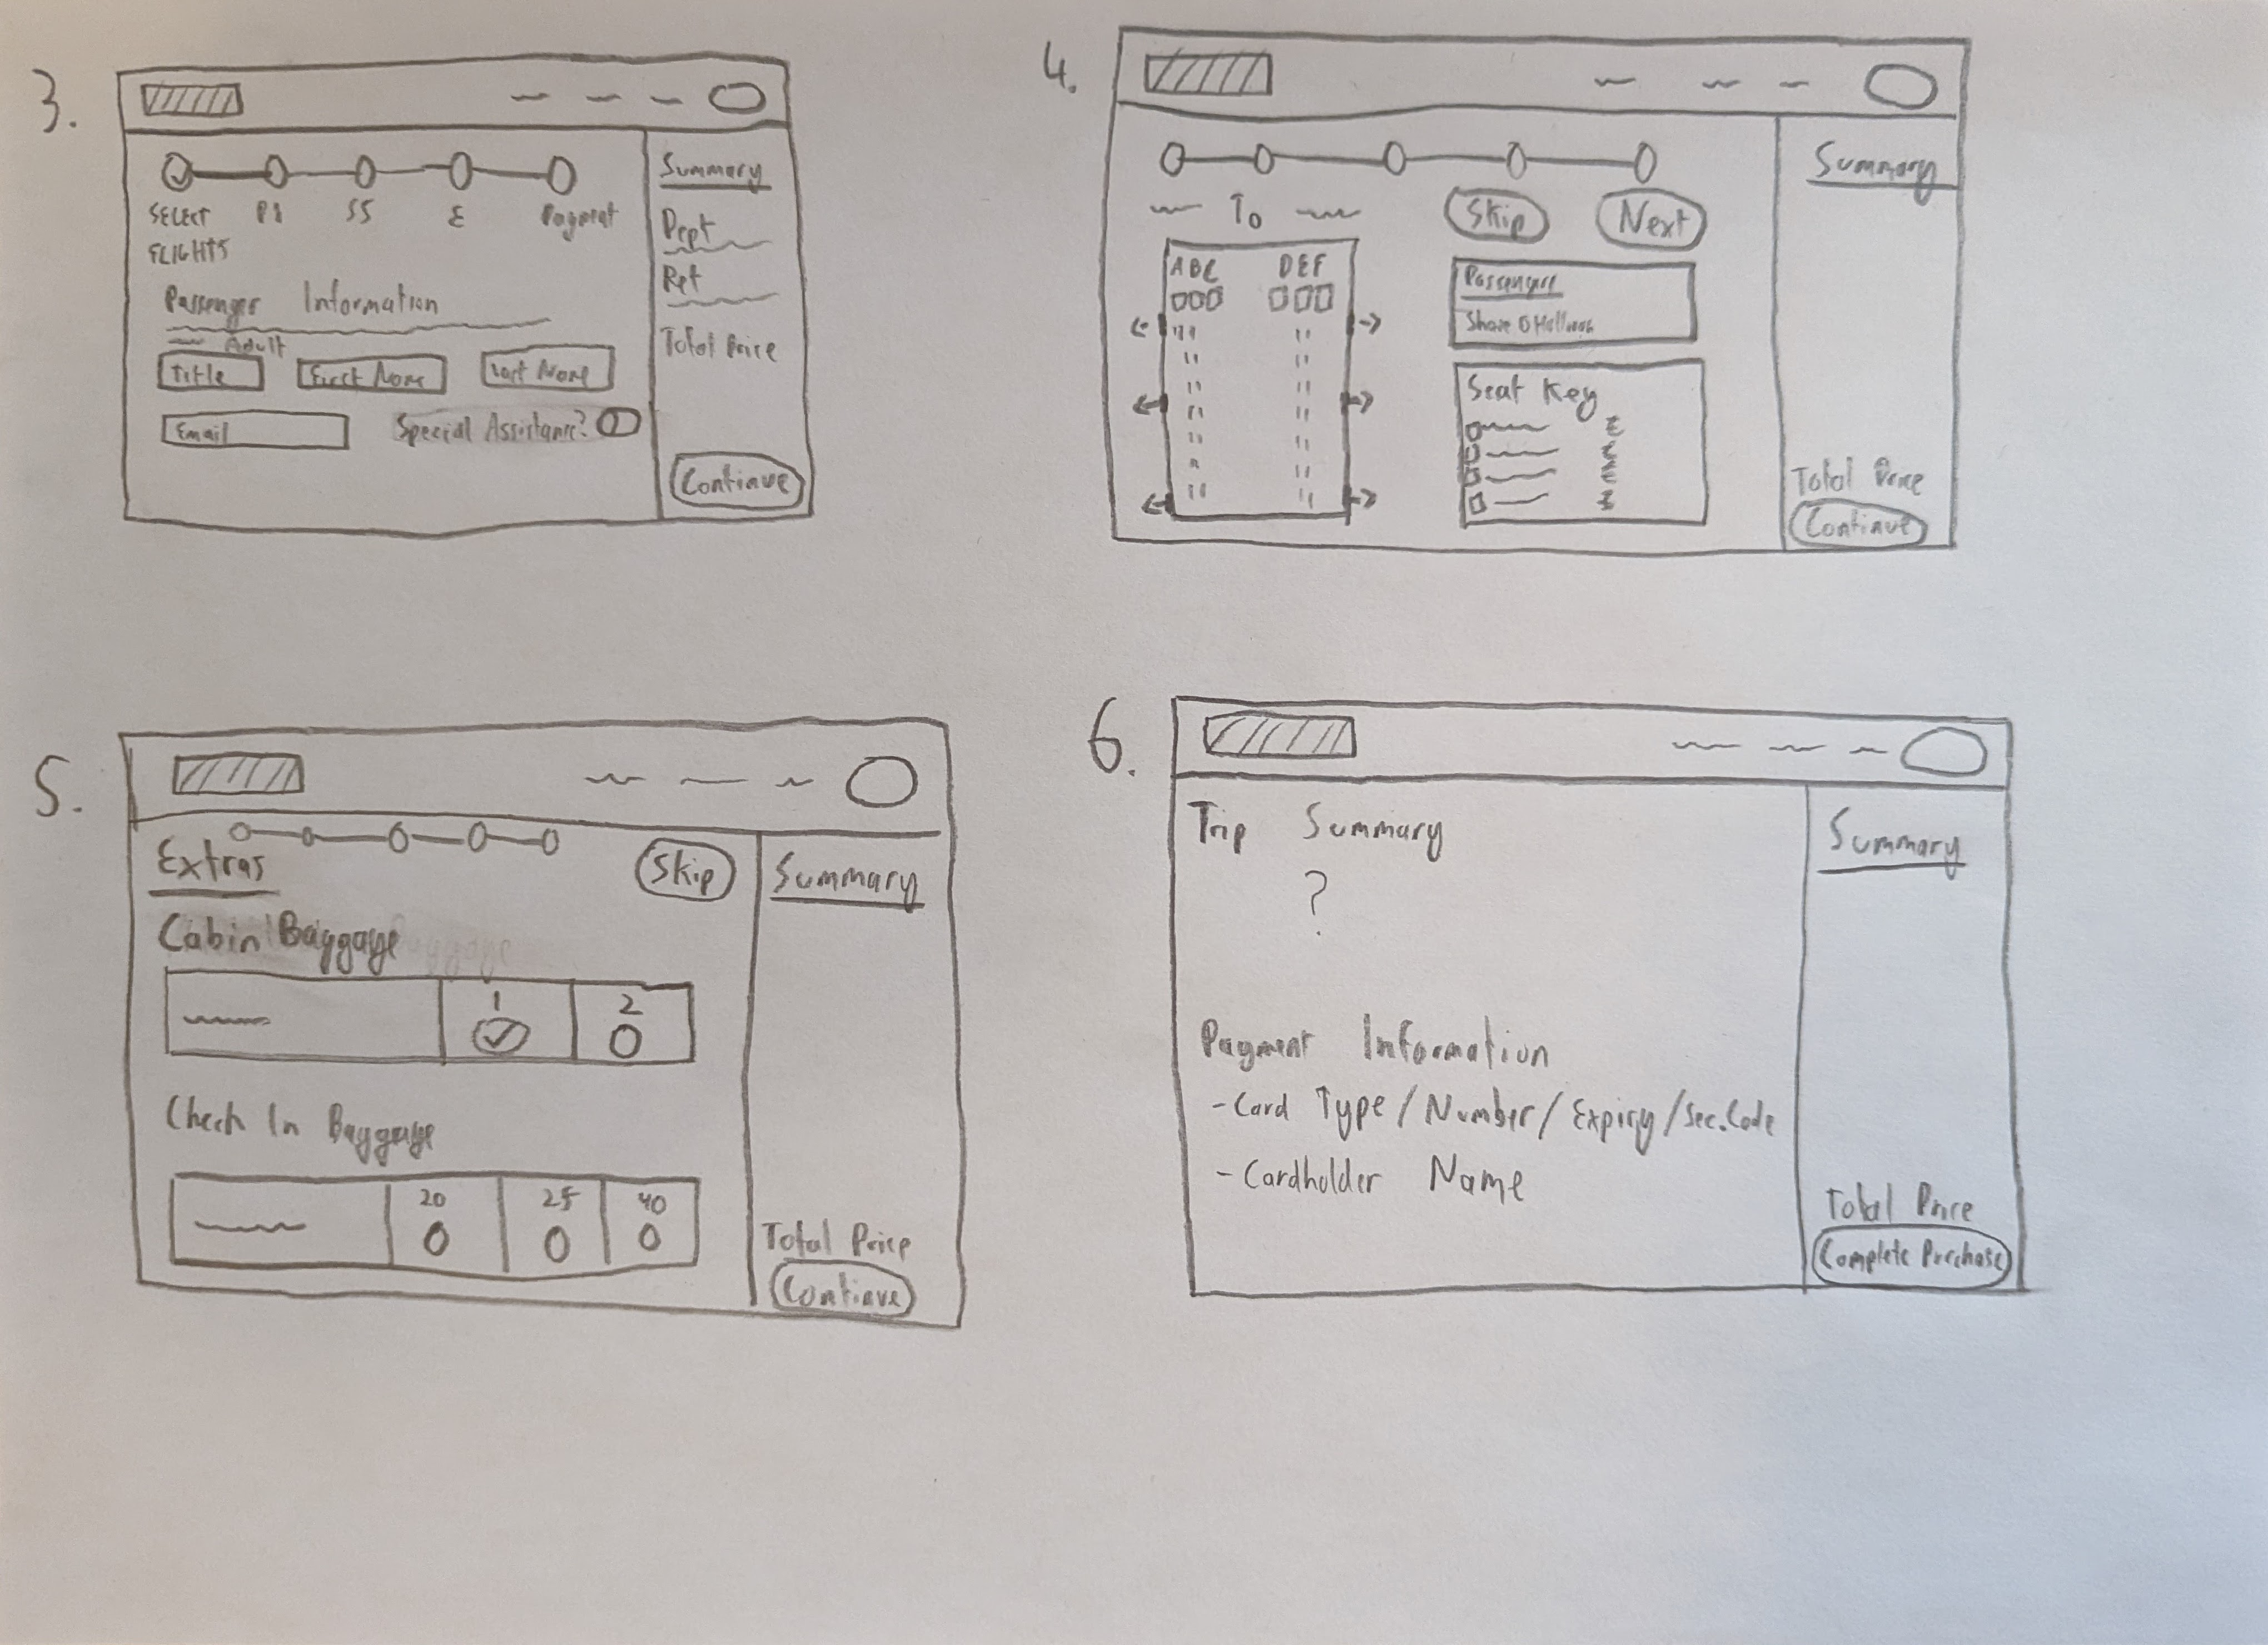 3.
SELECT
FLIGHTS
PI
SS
E
Payment
Passenger Information
Adult
Title
First Name
Last Name
Email
Special Assistance?
Summary
Dept
Ret
Total Price
Continue
4.
To
Skip
Next
A B C
D E F
Passengers
Seat Key
Summary
Total Price
Continue
5.
Extras
Skip
Cabin Baggage
1
2
Check In Baggage
20
25
40
Summary
Total Price
Continue
6.
Trip Summary
?
Payment Information
- Card Type / Number / Expiry / Sec. Code
- Cardholder Name
Summary
Total Price
Complete Purchase